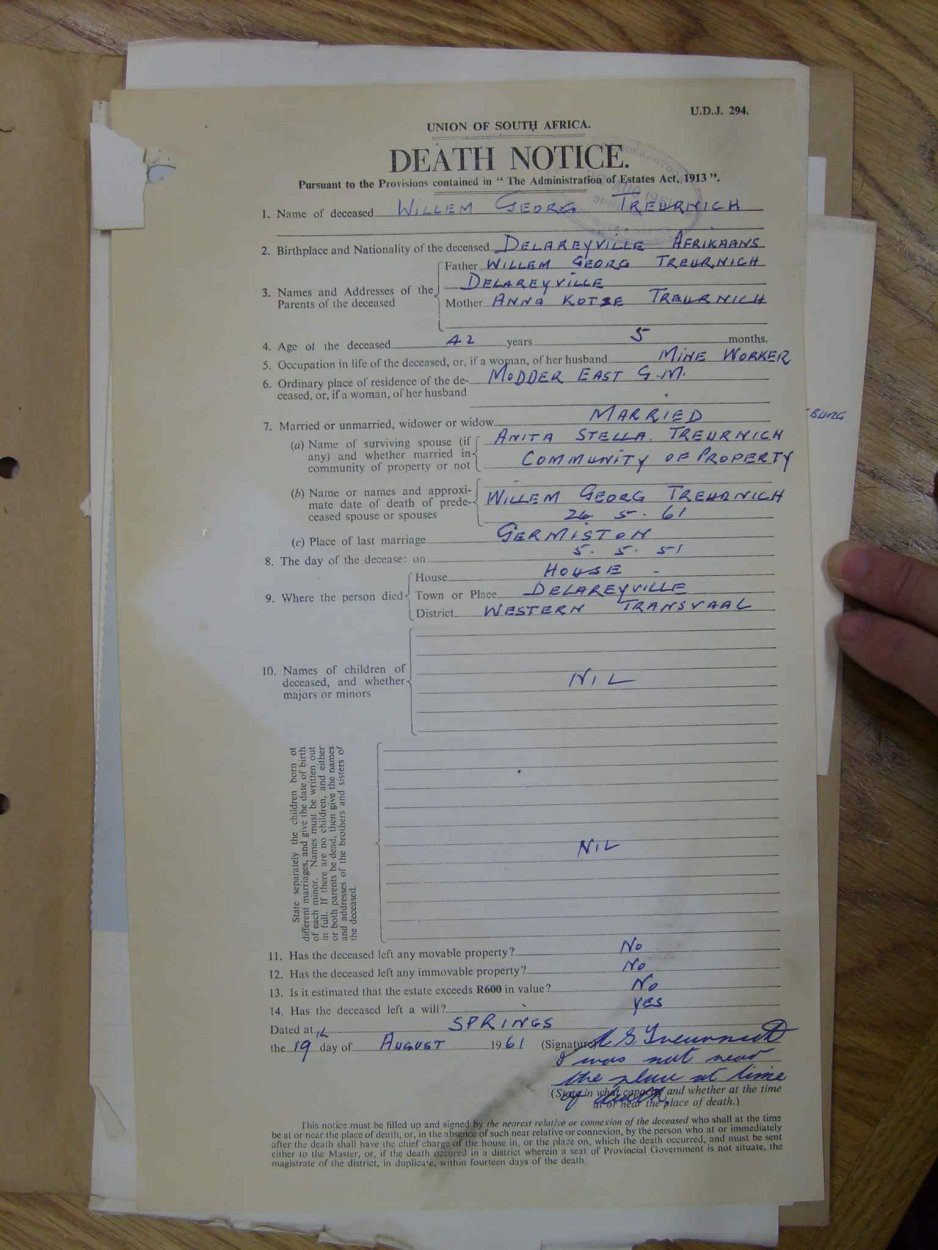 U.D.J. 294.
UNION OF SOUTH AFRICA.
DEATH NOTICE.
Pursuant to the Provisions contained in "The Administration of Estates Act, 1913".
1. Name of deceased WILLEM GEORG TREURNICH
2. Birthplace and Nationality of the deceased DELAREYVILLE AFRIKAANS
3. Names and Addresses of the Parents of the deceased
Father WILLEM GEORG TREURNICH
DELAREYVILLE
Mother ANNA KOTZE TREURNICH
4. Age of the deceased 42 years 5 months.
5. Occupation in life of the deceased, or, if a woman, of her husband MINE WORKER
6. Ordinary place of residence of the de- MODDER EAST G.M.
ceased, or, if a woman, of her husband
7. Married or unmarried, widower or widow MARRIED
(a) Name of surviving spouse (if ANITA STELLA. TREURNICH
any) and whether married in
community of property or not COMMUNITY OF PROPERTY
(b) Name or names and approxi- WILLEM GEORG TREURNICH
mate date of death of prede-
ceased spouse or spouses 26. 5. 61
(c) Place of last marriage GERMISTON
8. The day of the decease: on 5. 5. 51
9. Where the person died
House HOUSE -
Town or Place DELAREYVILLE
District WESTERN TRANSVAAL
10. Names of children of
deceased, and whether NIL
majors or minors
State separately the children born of
different marriages, and give the date of birth
of each minor. Names must be written out
in full. If there are no children, and either
or both parents be dead, then give the names
and addresses of the brothers and sisters of
the deceased.
NIL
11. Has the deceased left any movable property? No
12. Has the deceased left any immovable property? No
13. Is it estimated that the estate exceeds R600 in value? No
14. Has the deceased left a will? YES
Dated at SPRINGS
the 19 day of AUGUST 1961 (Signature) A S Treurnich
I was not near
the place at time
of death
(State in what capacity and whether at the time
at or near the place of death.)
This notice must be filled up and signed by the nearest relative or connexion of the deceased who shall at the time
be at or near the place of death, or, in the absence of such near relative or connexion, by the person who at or immediately
after the death shall have the chief charge of the house in, or the place on, which the death occurred, and must be sent
either to the Master, or, if the death occured in a district wherein a seat of Provincial Government is not situate, the
magistrate of the district, in duplicate, within fourteen days of the death.
BURG